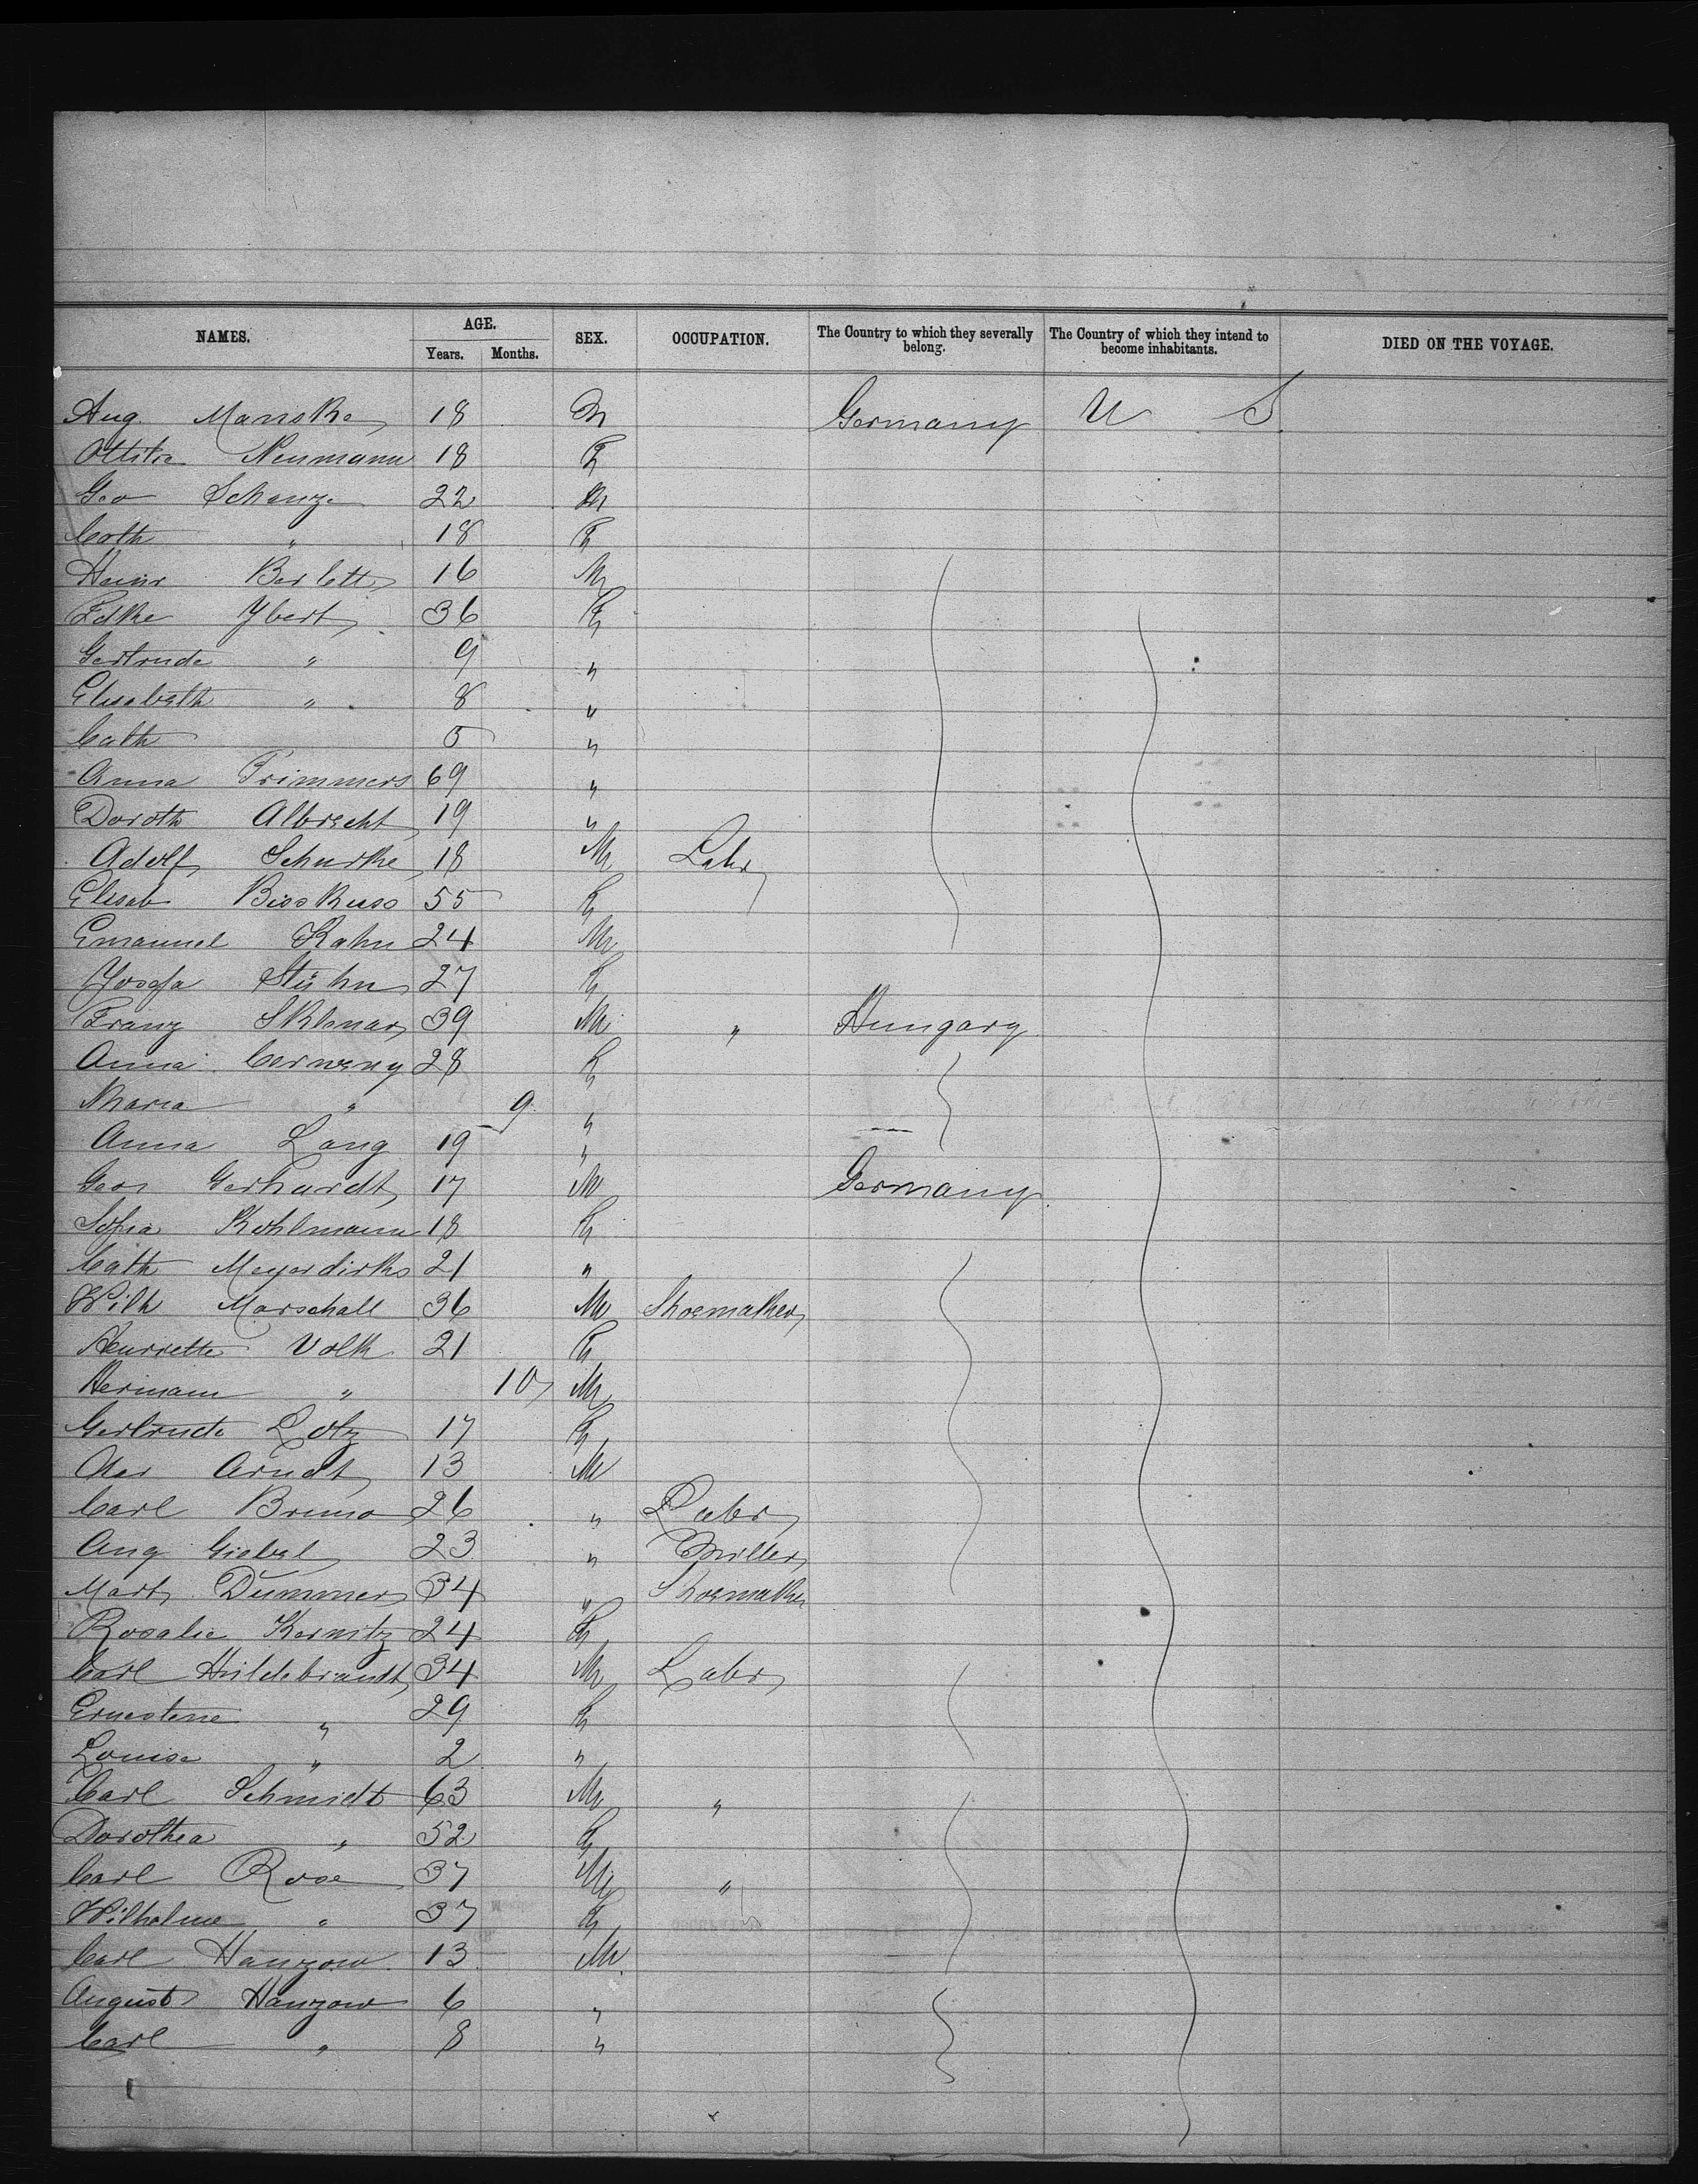 NAMES. AGE. SEX. OCCUPATION. The Country to which they severally belong. The Country of which they intend to become inhabitants. DIED ON THE VOYAGE.
Years. Months.
Aug. Manske 18 M Germany U S
Neumann 18 F
Geo Schanze 22 M
Cath " 18 F
Heinr Berlett 16 M
Edke Ybert 36 F
Gertrude " 9 "
Elisabeth " 8 "
Cath 5 "
Anna Trimmers 69 "
Doroth Albrecht 19 "
Adolf Schurke 18 M Labr
Elisab Bisskuss 55 F
Emanuel Kahn 24 M
Josefa Stühn 27 F
Franz Sklenar 39 M " Hungary
Anna Cerweny 28 F
Maria " 9 "
Anna Lang 19 "
Geor Gerhardt 17 M Germany
Sofia Kohlmann 18 F
Cath Meyerdirks 21 "
Wilh Marschall 36 M Shoemaker
Henriette Volk 21 F
Hermann " 10 M
Gertrude Lotz 17 F
Arndt 13 M
Carl Bruno 26 " Labr
Aug Giebel 23 " Miller
Mart Dummer 34 " Shoemaker
Rosalie Kernitz 24 F
Carl Hildebrandt 34 M Labr
Ernestine " 29 F
Louise " 2 "
Carl Schmidt 63 M "
Dorothea " 52 F
Carl Rose 37 M "
Wilhelmine " 37 F
Carl Hanzow 13 M
August Hanzow 6 "
Carl " 8 "